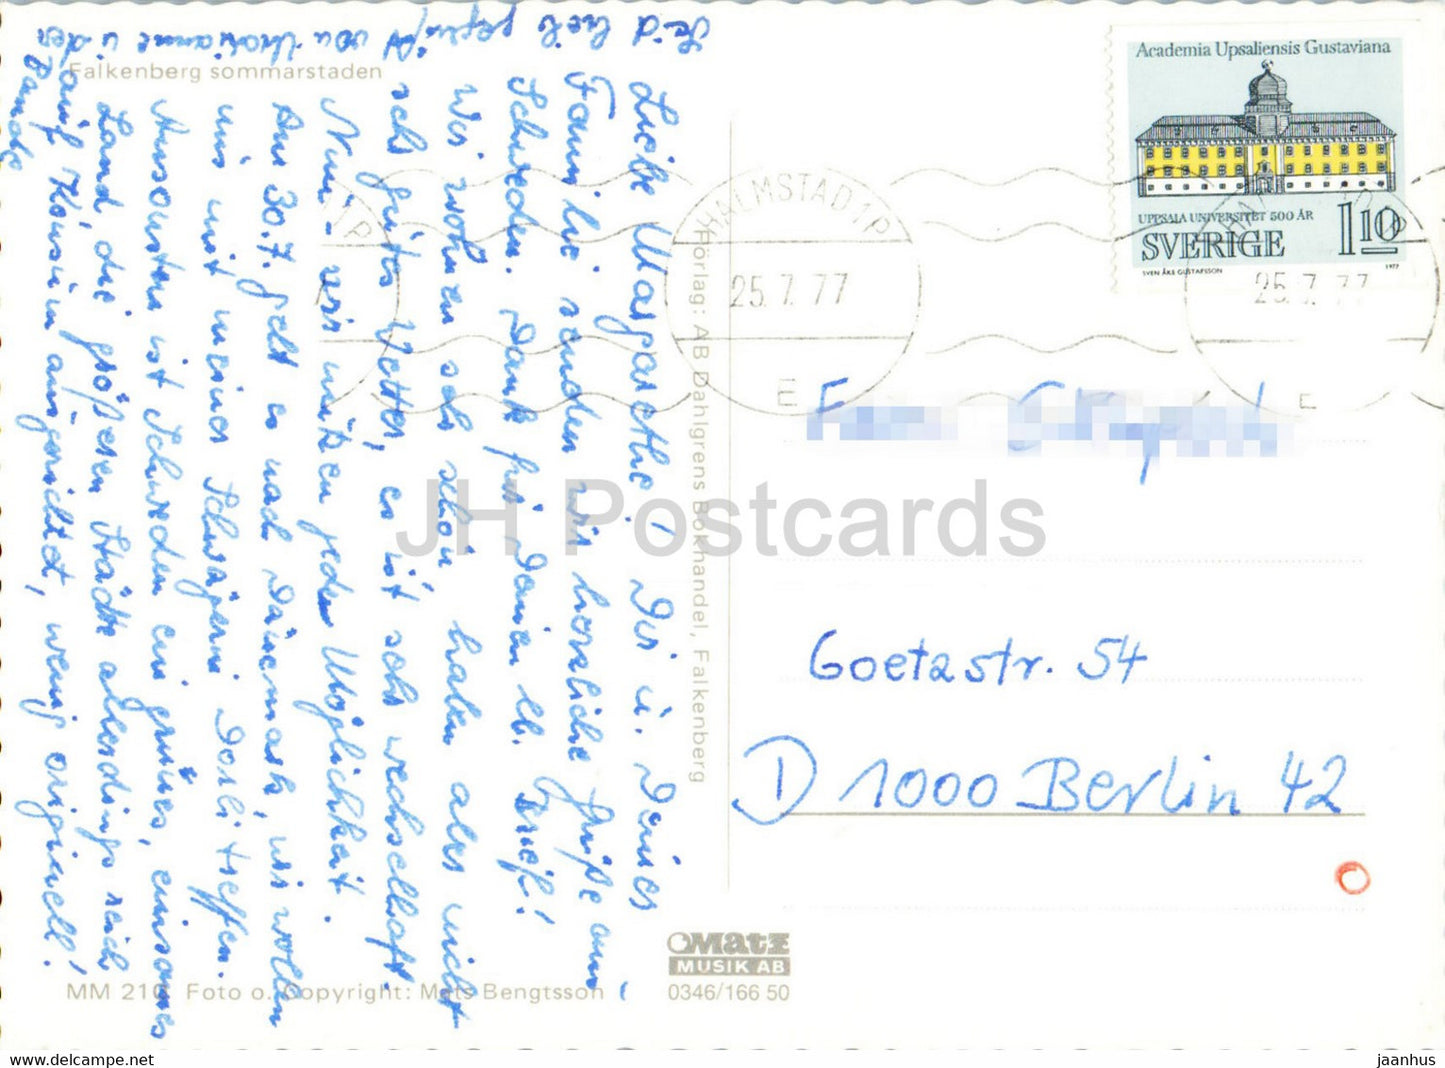 Falkenberg sommarstaden
Liebe Margarethe! Dir u. Deiner
Familie senden wir herzliche Grüße aus
Schweden. Dank für Deinen lb. Brief!
Wir wohnen sehr schön, haben aber nicht
sehr gutes Wetter, es ist sehr wechselhaft.
Nun - wir nutzen jede Möglichkeit.
Am 30.7. geht es nach Dänemark, wir wollen
uns mit meiner Schwägerin Dorli treffen.
Ansonsten ist Schweden ein grünes, einsames
Land, die größeren Städte allerdings reich
auf Konsum ausgerichtet, wenig originell!
Seid lieb gegrüßt von u. der
Bande
MM 210 Foto o. Copyright: Mats Bengtsson
Förlag: AB Dahlgrens Bokhandel, Falkenberg
Matz
MUSIK AB
0346/166 50
Academia Upsaliensis Gustaviana
UPPSALA UNIVERSITET 500 ÅR
SVERIGE 1 10
SVEN ÅKE GUSTAFSSON 1977
HALMSTAD 1 P
25.7.77
E
25.7.77
E
Goetzstr. 54
D 1000 Berlin 42
JH Postcards
www.delcampe.net
jaanhus